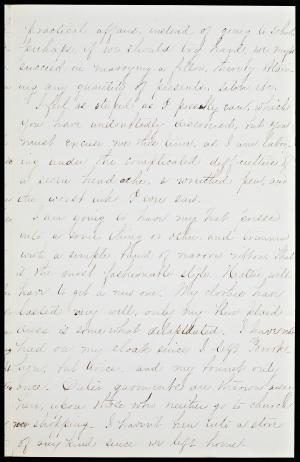 practical affairs, instead of going to school
perhaps, if we should try hard, we might
succeed in marrying a fellow, thereby obtain
ing any quantity of presents, silver etc.
I feel as stupid as I possibly can, which
you have undoubtedly discovered, but you
must excuse me this time, as I am labor
ing under the complicated difficulties of
a severe head ache, a wretched pen, and
the worst ink I ever saw.
I am going to have my hat
into a some thing or other, and trimmed
with a simple band of narrow ribbon. That
is the most fashionable style. Hattie will
have to get a new one. My clothes have
lasted very well, only my blue plaid
dress is somewhat delapidated. I have not
had on my cloak since I left
but twice, and my bonnet only
once. Outer garments are thrown away
here, upon those who neither go to church
nor shopping. I haven't been into a store
of any kind since we left home